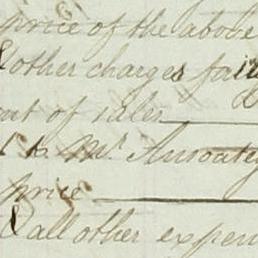 price of the above
& other charges
out of sales
to Mr.
price
& all other expen